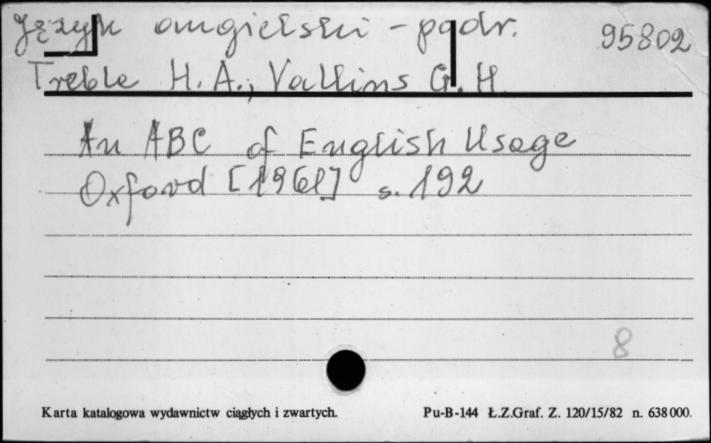 Język angielski - podr. 95802
Treble H. A., Vallins G. H.
An ABC of English Usage
Oxford [1961] s. 192
8
Karta katalogowa wydawnictw ciągłych i zwartych. Pu-B-144 Ł.Z.Graf. Z. 120/15/82 n. 638000.